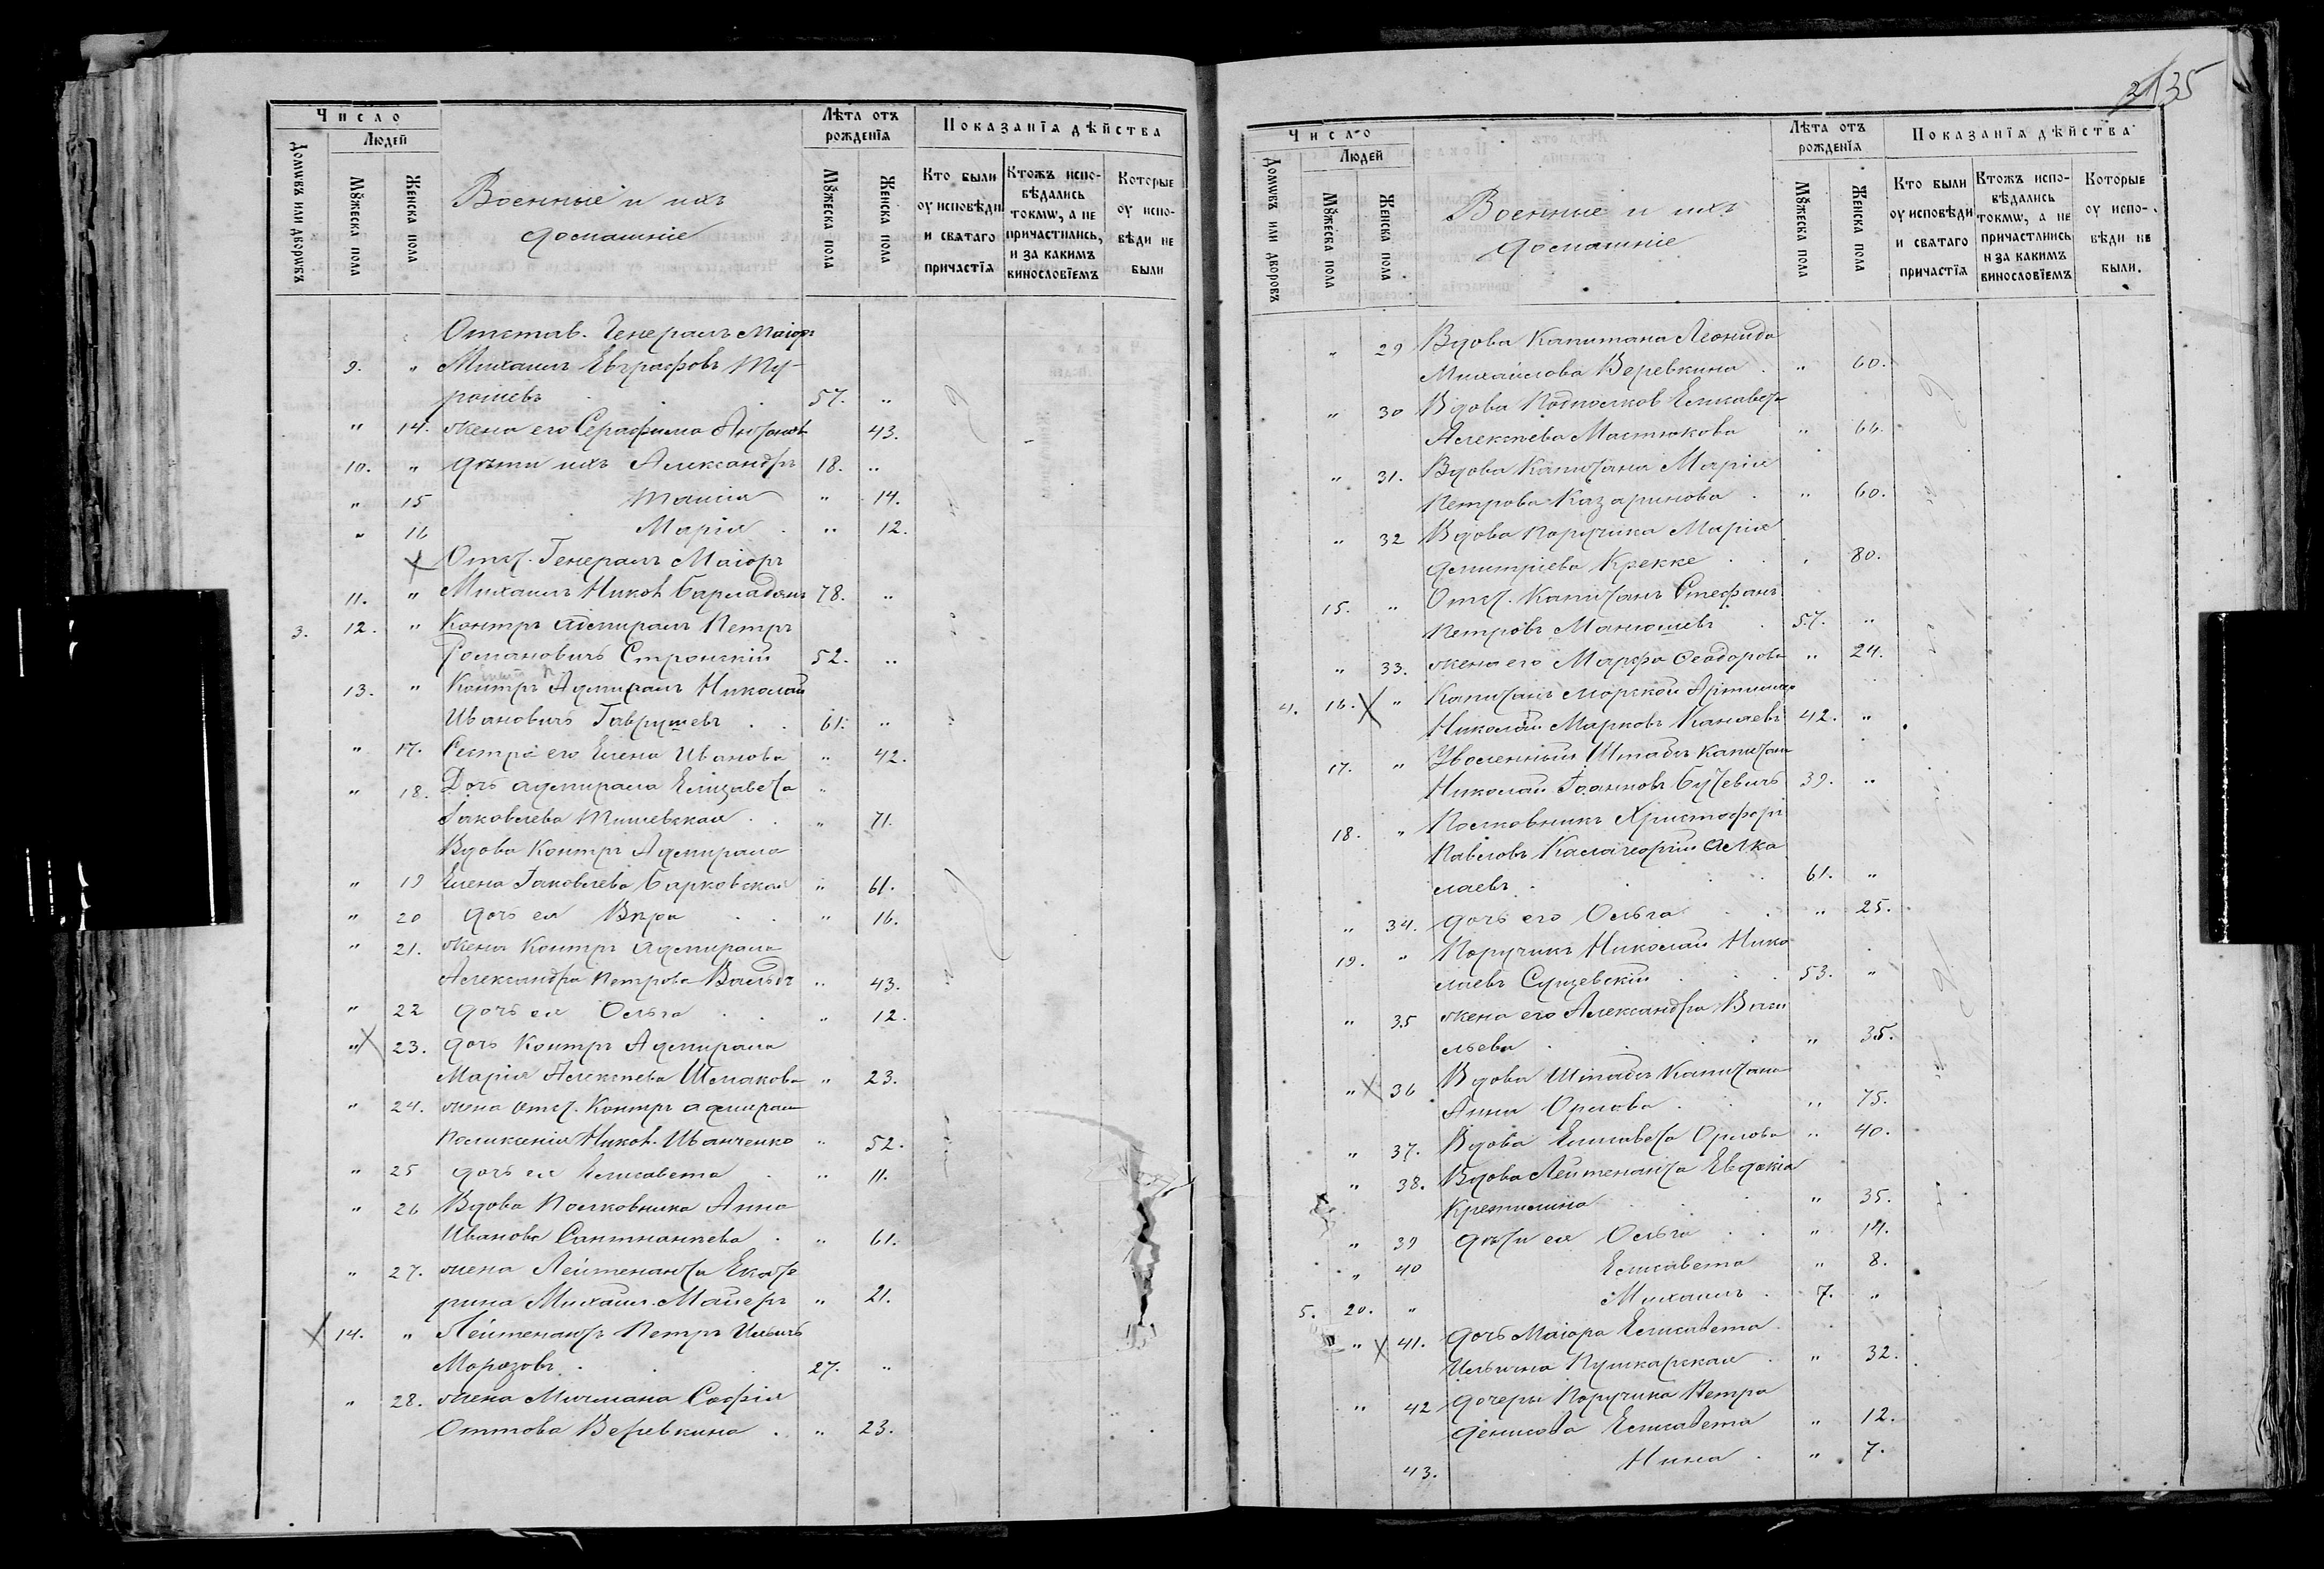 Число
Людей
Домѡвъ или дворѡвъ
Мꙋжеска пола
Женска пола
Военные и ихъ
домашніе
Лѣта отъ
рожденїѧ
Мꙋжеска пола
Женска пола
Показанїѧ дѣйства
Кто были
оу исповѣди
и свѧтаго
причастїѧ
Ктожъ испо-
вѣдались
токмѡ, а не
причастились,
и за какимъ
винословїемъ
Которые
оу испо-
вѣди не
были
Отстав. Генералъ Маіоръ
9. " Михаилъ Евграфовъ Ту-
рошевъ 57. "
" 14. жена его Серафима 43.
10. " дѣти ихъ Александръ 18. "
" 15 Таисія " 14.
" 16 Марія " 12.
Отст. Генералъ Маіоръ
11. " Михаилъ Никол. 78. "
3. 12. " Контръ Адмиралъ Петръ
Романовичъ Стронскій 52. "
13. " Контръ Адмиралъ Николай
Ивановичъ Гаврушевъ 61. "
" 17. Сестра его Елена Иванова " 42.
" 18. Дочь адмирала Елизавета "
Іаковлева " 71.
Вдова Контръ Адмирала
" 19 Елена Іаковлева Барковская " 61.
" 20 дочь ея Вѣра " 16.
" 21. жена Контръ Адмирала
Александра Петрова " 43.
" 22 дочь ея Ольга " 12.
" 23. дочь Контръ Адмирала
Марія Алексѣева Шмакова " 23.
" 24. жена отст. Контръ адмирал
Поликсенія Никол. Иванченко " 52.
" 25 дочь ея Елисавета " 11.
" 26 Вдова Полковника Анна
Иванова " 61.
" 27. жена Лейтенанта Екате
рина Михаил. Майеръ " 21.
14. " Лейтенантъ Петръ Ильичъ
Морозовъ 27. "
" 28. жена Мичмана Софія
Оттова Веревкина " 23.
21 35
Число
Людей
Домѡвъ или дворѡвъ
Мꙋжеска пола
Женска пола
Военные и ихъ
домашніе
Лѣта отъ
рожденїѧ
Мꙋжеска пола
Женска пола
Показанїѧ дѣйства
Кто были
оу исповѣди
и свѧтаго
причастїѧ
Ктожъ испо-
вѣдались
токмѡ, а не
причастились
и за какимъ
винословїемъ
Которые
оу испо-
вѣди не
были.
" 29 Вдова Капитана Леонида
Михайлова Веревкина " 60.
" 30 Вдова Подполков Елисавета
Алексѣева Мастюкова " 66.
" 31. Вдова Капитана Марія
Петрова Казаринова " 60.
" 32 Вдова Поручика Марія
Дмитріева Крекке " 80.
15. " Отст. Капитанъ Стефанъ
Петровъ Манюшевъ 57. "
" 33. жена его Марфа Ѳеодорова " 24.
4. 16. " Капитанъ морской Артиллер
Николай Марковъ Каняевъ 42. "
17. " Уволенный Штабъ Капитанъ
Николай Іоанновъ Бутевичъ 39. "
18. " Полковникъ Христофоръ
Павловъ
лаевъ 61. "
" 34. дочь его Ольга " 25.
19. " Поручикъ Николай Нико
лаевъ Сущевскій 53. "
" 35 жена его Александра Васи
льева " 35.
" 36 Вдова Штабъ Капитана
Анна Орлова " 75.
" 37. Вдова Елисавета Орлова " 40.
" 38. Вдова Лейтенанта Евдокія
" 35.
" 39 дѣти ея Ольга " 14.
" 40 Елисавета " 8.
5. 20. " Михаилъ 7. "
" 41. дочь Маіора Елисавета
Ильична Пушкарская " 32.
" 42 дочери Поручика Петра
Денисова Елисавета " 12.
43. Нина " 7.